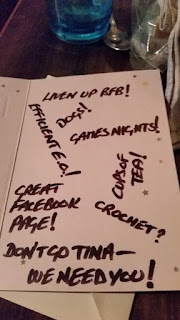 LIVEN UP RFB!
DOGS!
EFFICIENT E.D.!
GAMES NIGHTS!
CUPS OF
TEA!
GREAT
FACEBOOK
PAGE!
CROCHET?
DON'T GO TINA—
WE NEED YOU!